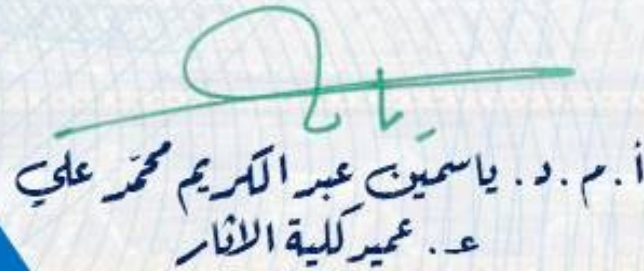 أ.م.د. ياسمين عبد الكريم محمّد علي
عـ. عميد كلية الاثار